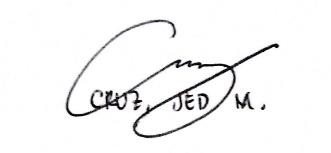 CRUZ, JED M.